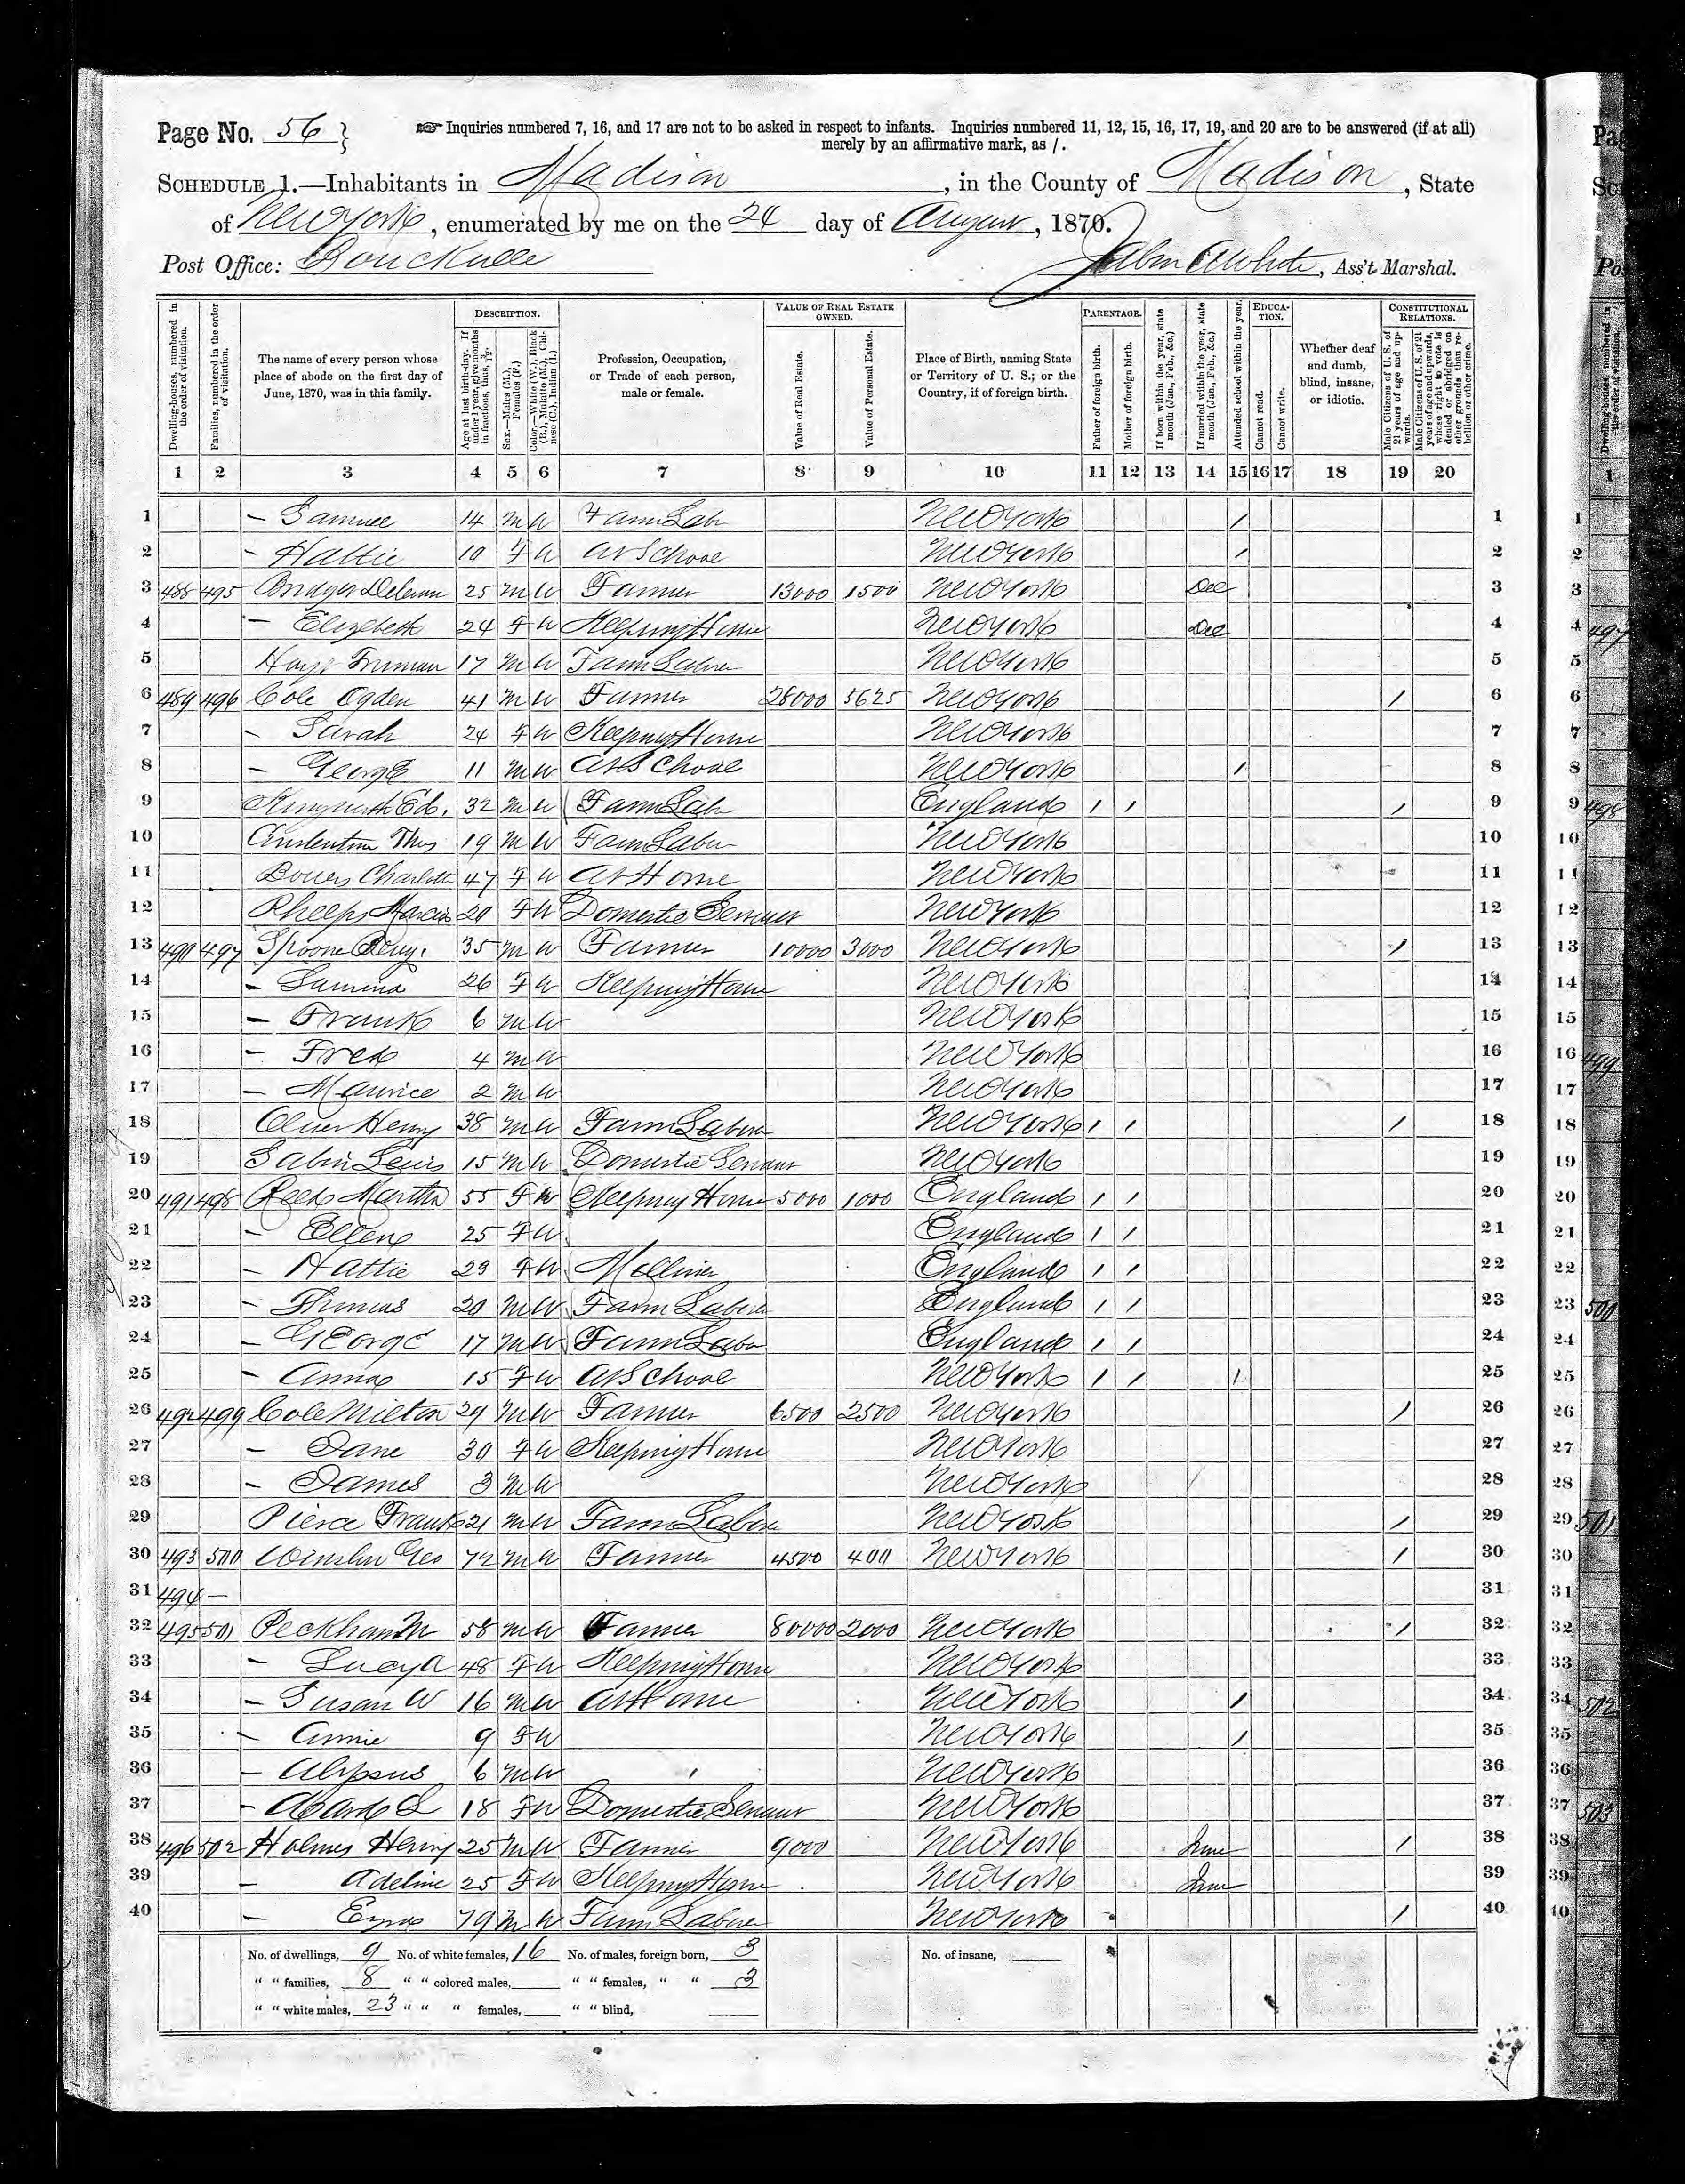 Page No. 56
Inquiries numbered 7, 16, and 17 are not to be asked in respect to infants. Inquiries numbered 11, 12, 15, 16, 17, 19, and 20 are to be answered (if at all)
merely by an affirmative mark, as /.
SCHEDULE 1.—Inhabitants in Madison, in the County of Madison, State
of New York, enumerated by me on the 24 day of August, 1870.
Post Office: Bouckville
White, Ass't Marshal.
Dwelling-houses, numbered in the order of visitation.
Families, numbered in the order of visitation.
The name of every person whose place of abode on the first day of June, 1870, was in this family.
DESCRIPTION.
Age at last birth-day. If under 1 year, give months in fractions, thus, 3/12.
Sex.—Males (M.), Females (F.)
Color.—White (W.), Black (B.), Mulatto (M.), Chinese (C.), Indian (I.)
Profession, Occupation, or Trade of each person, male or female.
VALUE OF REAL ESTATE OWNED.
Value of Real Estate.
Value of Personal Estate.
Place of Birth, naming State or Territory of U. S.; or the Country, if of foreign birth.
PARENTAGE.
Father of foreign birth.
Mother of foreign birth.
If born within the year, state month (Jan., Feb., &c.)
If married within the year, state month (Jan., Feb., &c.)
Attended school within the year.
EDUCATION.
Cannot read.
Cannot write.
Whether deaf and dumb, blind, insane, or idiotic.
CONSTITUTIONAL RELATIONS.
Male Citizens of U. S. of 21 years of age and upwards.
Male Citizens of U. S. of 21 years of age and upwards, whose right to vote is denied or abridged on other grounds than rebellion or other crime.
1 2 3 4 5 6 7 8 9 10 11 12 13 14 15 16 17 18 19 20
1 — Samuel 14 M W Farm Labr New York / 1
2 — Hattie 10 F W At School New York / 2
3 488 495 25 M W Farmer 13000 1500 New York Dec 3
4 — Elizabeth 24 F W Keeping House New York Dec 4
5 Truman 17 M W Farm Laborer New York 5
6 489 496 Cole Ogden 41 M W Farmer 28000 5625 New York / 6
7 — Sarah 24 F W Keeping House New York 7
8 — George 11 M W At School New York / 8
9 Ed. 32 M W Farm Labr England / / / 9
10 Thos 19 M W Farm Labor New York 10
11 Charlotte 47 F W At Home New York 11
12 Phelps 20 F W Domestic Servant New York 12
13 490 497 35 M W Farmer 10000 3000 New York / 13
14 — 26 F W Keeping House New York 14
15 — Frank 6 M W New York 15
16 — Fred 4 M W New York 16
17 — Maurice 2 M W New York 17
18 Henry 38 M W Farm Laborer New York / / / 18
19 Sabin Lewis 15 M W Domestic Servant New York 19
20 491 498 Reed Martha 55 F W Keeping House 5000 1000 England / / 20
21 — Ellen 25 F W England / / 21
22 — Hattie 23 F W Milliner England / / 22
23 — Thomas 20 M W Farm Laborer England / / 23
24 — George 17 M W Farm Labor England / / 24
25 — Anna 15 F W At School New York / / / 25
26 492 499 Cole Milton 29 M W Farmer 6500 2500 New York / 26
27 — Jane 30 F W Keeping House New York 27
28 — James 3 M W New York 28
29 Pierce Frank 21 M W Farm Laborer New York / 29
30 493 500 Winslow Geo 72 M W Farmer 4500 400 New York / 30
31 494 — 31
32 495 501 Peckham 58 M W Farmer 80000 2000 New York / 32
33 — Lucy A 48 F W Keeping House New York 33
34 — Susan W 16 M W At Home New York / 34
35 — Annie 9 F W New York / 35
36 — 6 M W New York 36
37 — 18 F W Domestic Servant New York 37
38 496 502 Holmes Henry 25 M W Farmer 9000 New York June / 38
39 — Adeline 25 F W Keeping House New York June 39
40 — 79 M W Farm Laborer New York / 40
No. of dwellings, 9 No. of white females, 16 No. of males, foreign born, 3 No. of insane,
" " families, 8 " " colored males, " " females, " " 3
" " white males, 23 " " " females, " " blind,